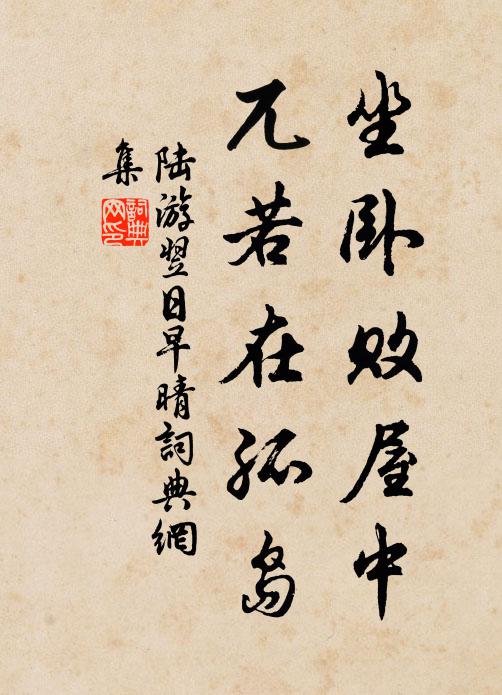 坐卧败屋中
兀若在孤岛
陆游翌日早晴詞典網
集
詞典網印